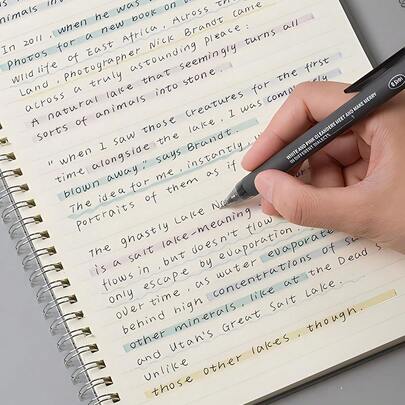 animals in
when he was
In 2011, when he was
photos for a new book on
Wildlife of East Africa, Across the
Land, Photographer Nick Brandt came
across a truly astounding place:
A natural lake that seemingly turns all
sorts of animals into stone.
"when I saw those creatures for the first
time alongside the lake, I was completely
blown away." says Brandt.
The idea for me, instantly, w
Portraits of them as if
The ghastly Lake Na
is a salt lake-meaning
flows in, but doesn't flow
only escape by evaporation
over time, as water evaporate
behind high concentrations of sa
other minerals, like at the Dead S
and Utah's Great Salt Lake.
Unlike
those other lakes, though.
WHITE AND PINK OLEANDERS MEET AND MAKE MERRY
IN DIFFERENT DIALECTS